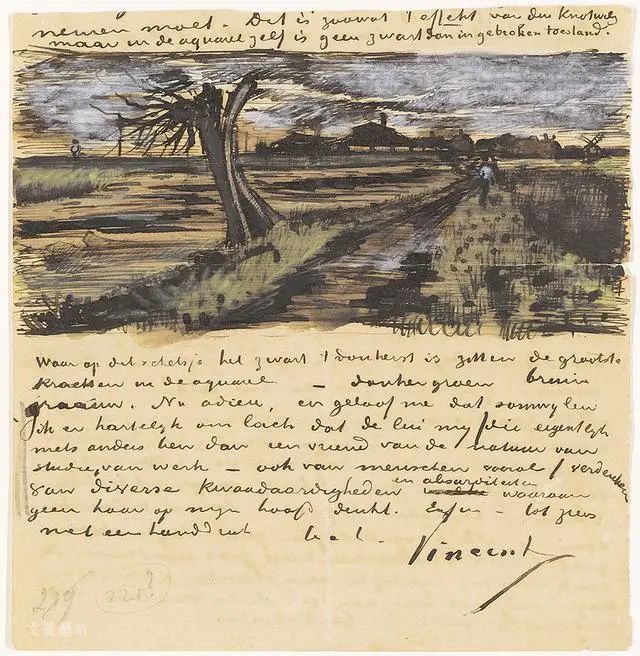 nemen moet. Dit is zoowat 't effekt van den Knotwilg
maar in de aquarel zelf is geen zwart dan in gebroken toestand.
Waar op dit schetsje het zwart 't donkerst is zitten de grootste
krachten in de aquarel – donkergroen bruin
graauw. Nu adieu, en geloof me dat somwylen
ik er hartelyk om lach dat de lui my (die eigentlyk
niets anders ben dan een vriend van de natuur van
studie, van werk – ook van menschen vooral) verdenken
van diverse kwaadaardigheden en absurditeiten waaraan
geen haar op myn hoofd denkt. Enfin – tot ziens
met een handdruk t. à t.
Vincent
221?